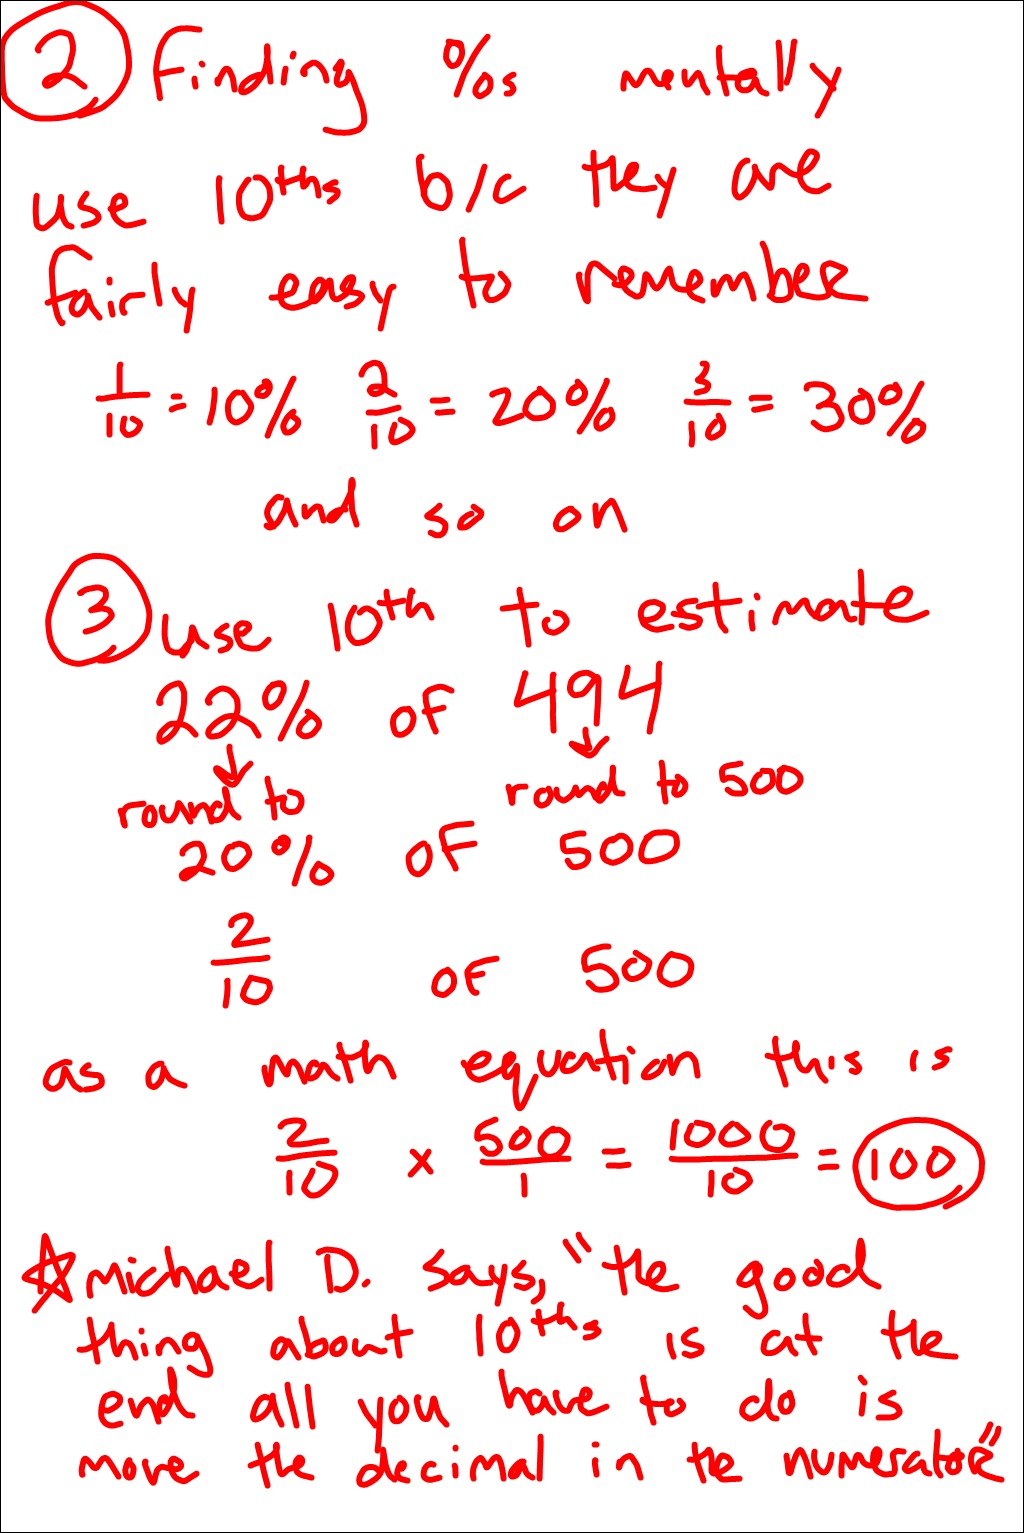 2 Finding %s mentally
use 10ths b/c they are
fairly easy to remember
1/10 = 10% 2/10 = 20% 3/10 = 30%
and so on
3 use 10th to estimate
22% of 494
round to round to 500
20% of 500
2/10 of 500
as a math equation this is
2/10 x 500/1 = 1000/10 = 100
☆ Michael D. says, "the good
thing about 10ths is at the
end all you have to do is
move the decimal in the numerator"